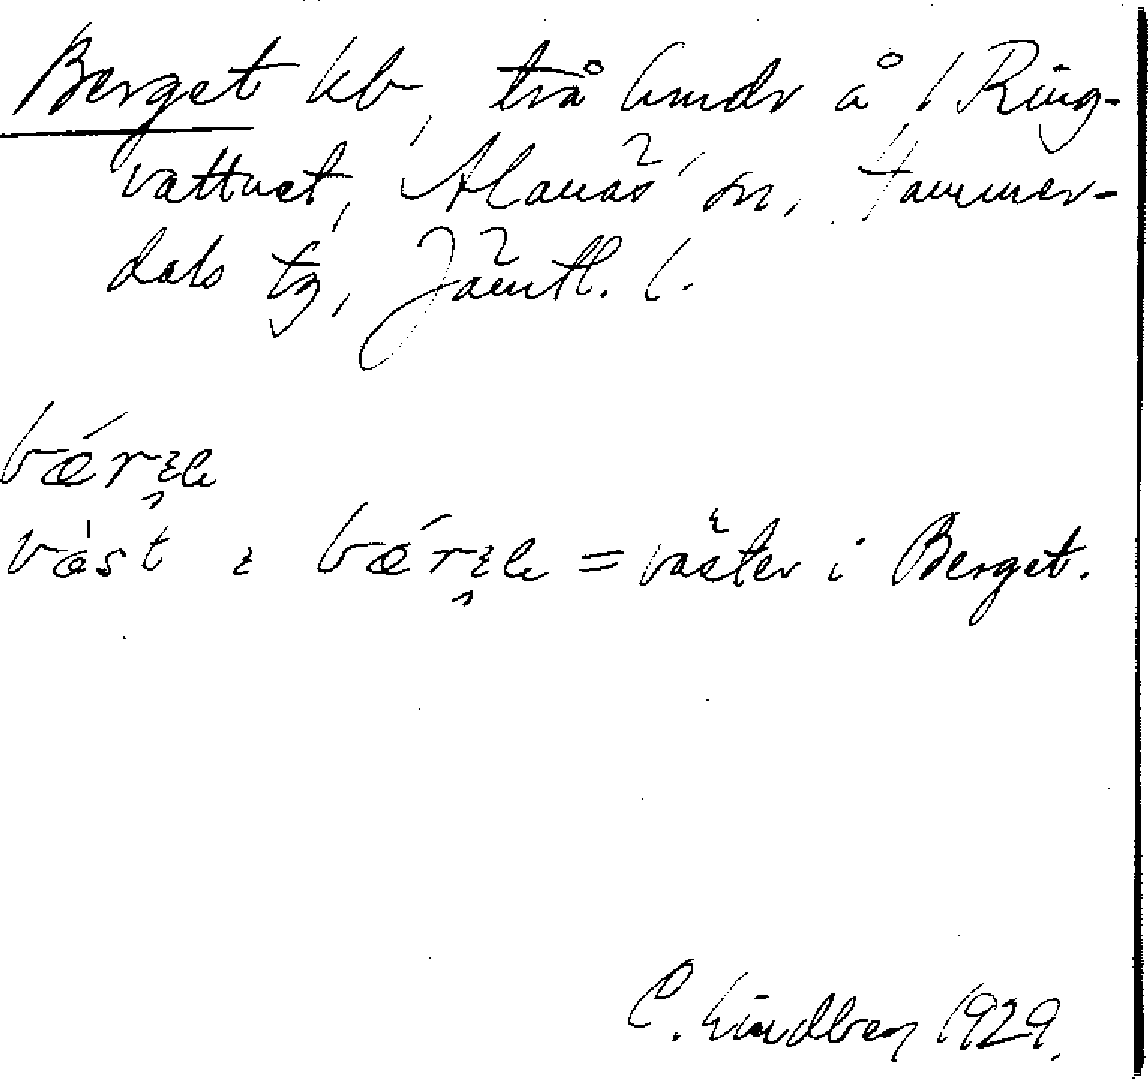 Berget kb, två lmdr å / Ring-
vattnet, Alanäs sn, Hammer-
dals tg, Jämtl. l.
bǽrʒe
væ̀st i bǽrʒe = väster i Berget.
C. Lindberg 1929.